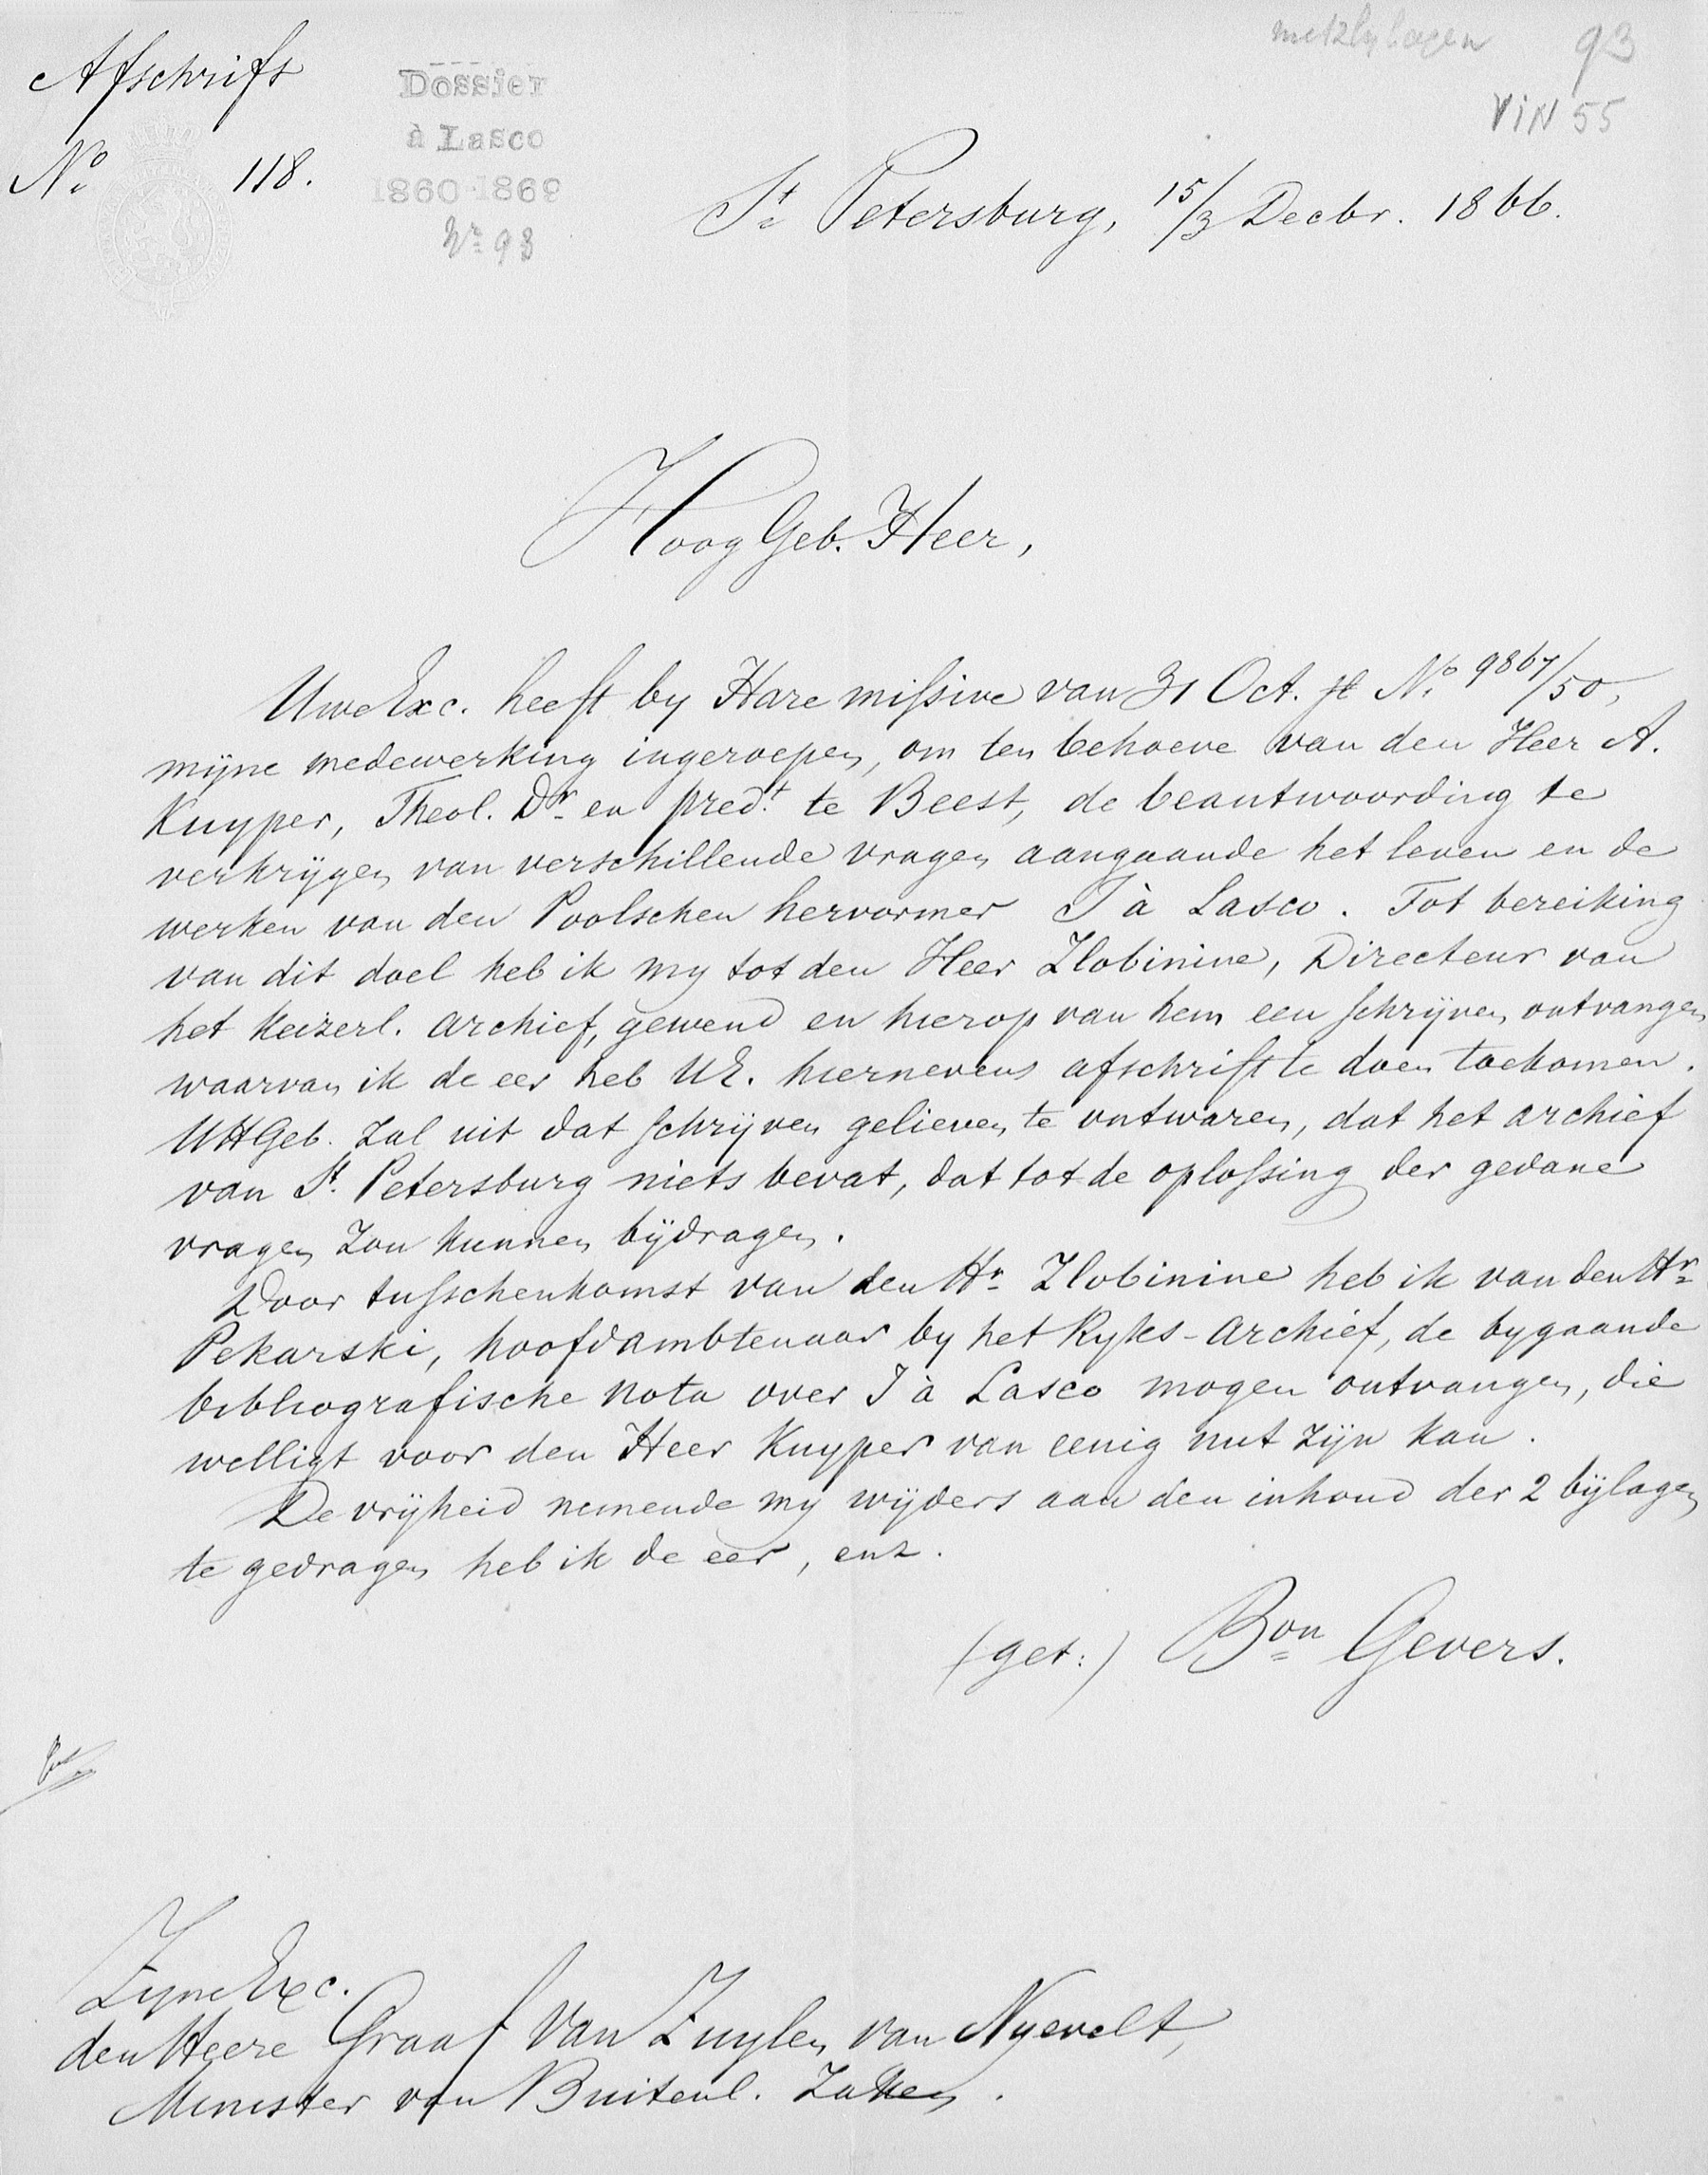 met bylagen 93
VIN 55
Afschrift
Dossier
à Lasco
1860-1869
Nr 93
No 118.
St Petersburg, 15/3 Decbr. 1866.
Hoog Geb. Heer,
Uwe Exc. heeft by Hare missive van 31 Oct. jl No 9867/50,
mijne medewerking ingeroepen, om ten behoeve van den Heer A.
Kuyper, Theol. Dr en predt te Beest, de beantwoording te
verkrijgen van verschillende vragen aangaande het leven en de
werken van den Poolschen hervormer J à Lasco. Tot bereiking
van dit doel heb ik my tot den Heer Zlobinine, Directeur van
het Keizerl. archief, gewend en hierop van hem een schrijven ontvangen
waarvan ik de eer heb UE. hiernevens afschrift te doen toekomen.
UHGeb. zal uit dat schrijven gelieven te ontwaren, dat het archief
van St. Petersburg niets bevat, dat tot de oplossing der gedane
vragen zou kunnen bijdragen.
Door tusschenkomst van den Hr Zlobinine heb ik van den Hr
Pekarski, hoofdambtenaar by het Ryks-archief, de bygaande
bibliografische nota over J à Lasco mogen ontvangen, die
welligt voor den Heer Kuyper van eenig nut zijn kan.
De vrijheid nemende my wijders aan den inhoud der 2 bijlagen
te gedragen heb ik de eer, enz.
(get:) Bon Gevers.
Zyne Exc.
den Heere Graaf van Zuylen van Nyevelt,
Minister van Buitenl. Zaken.